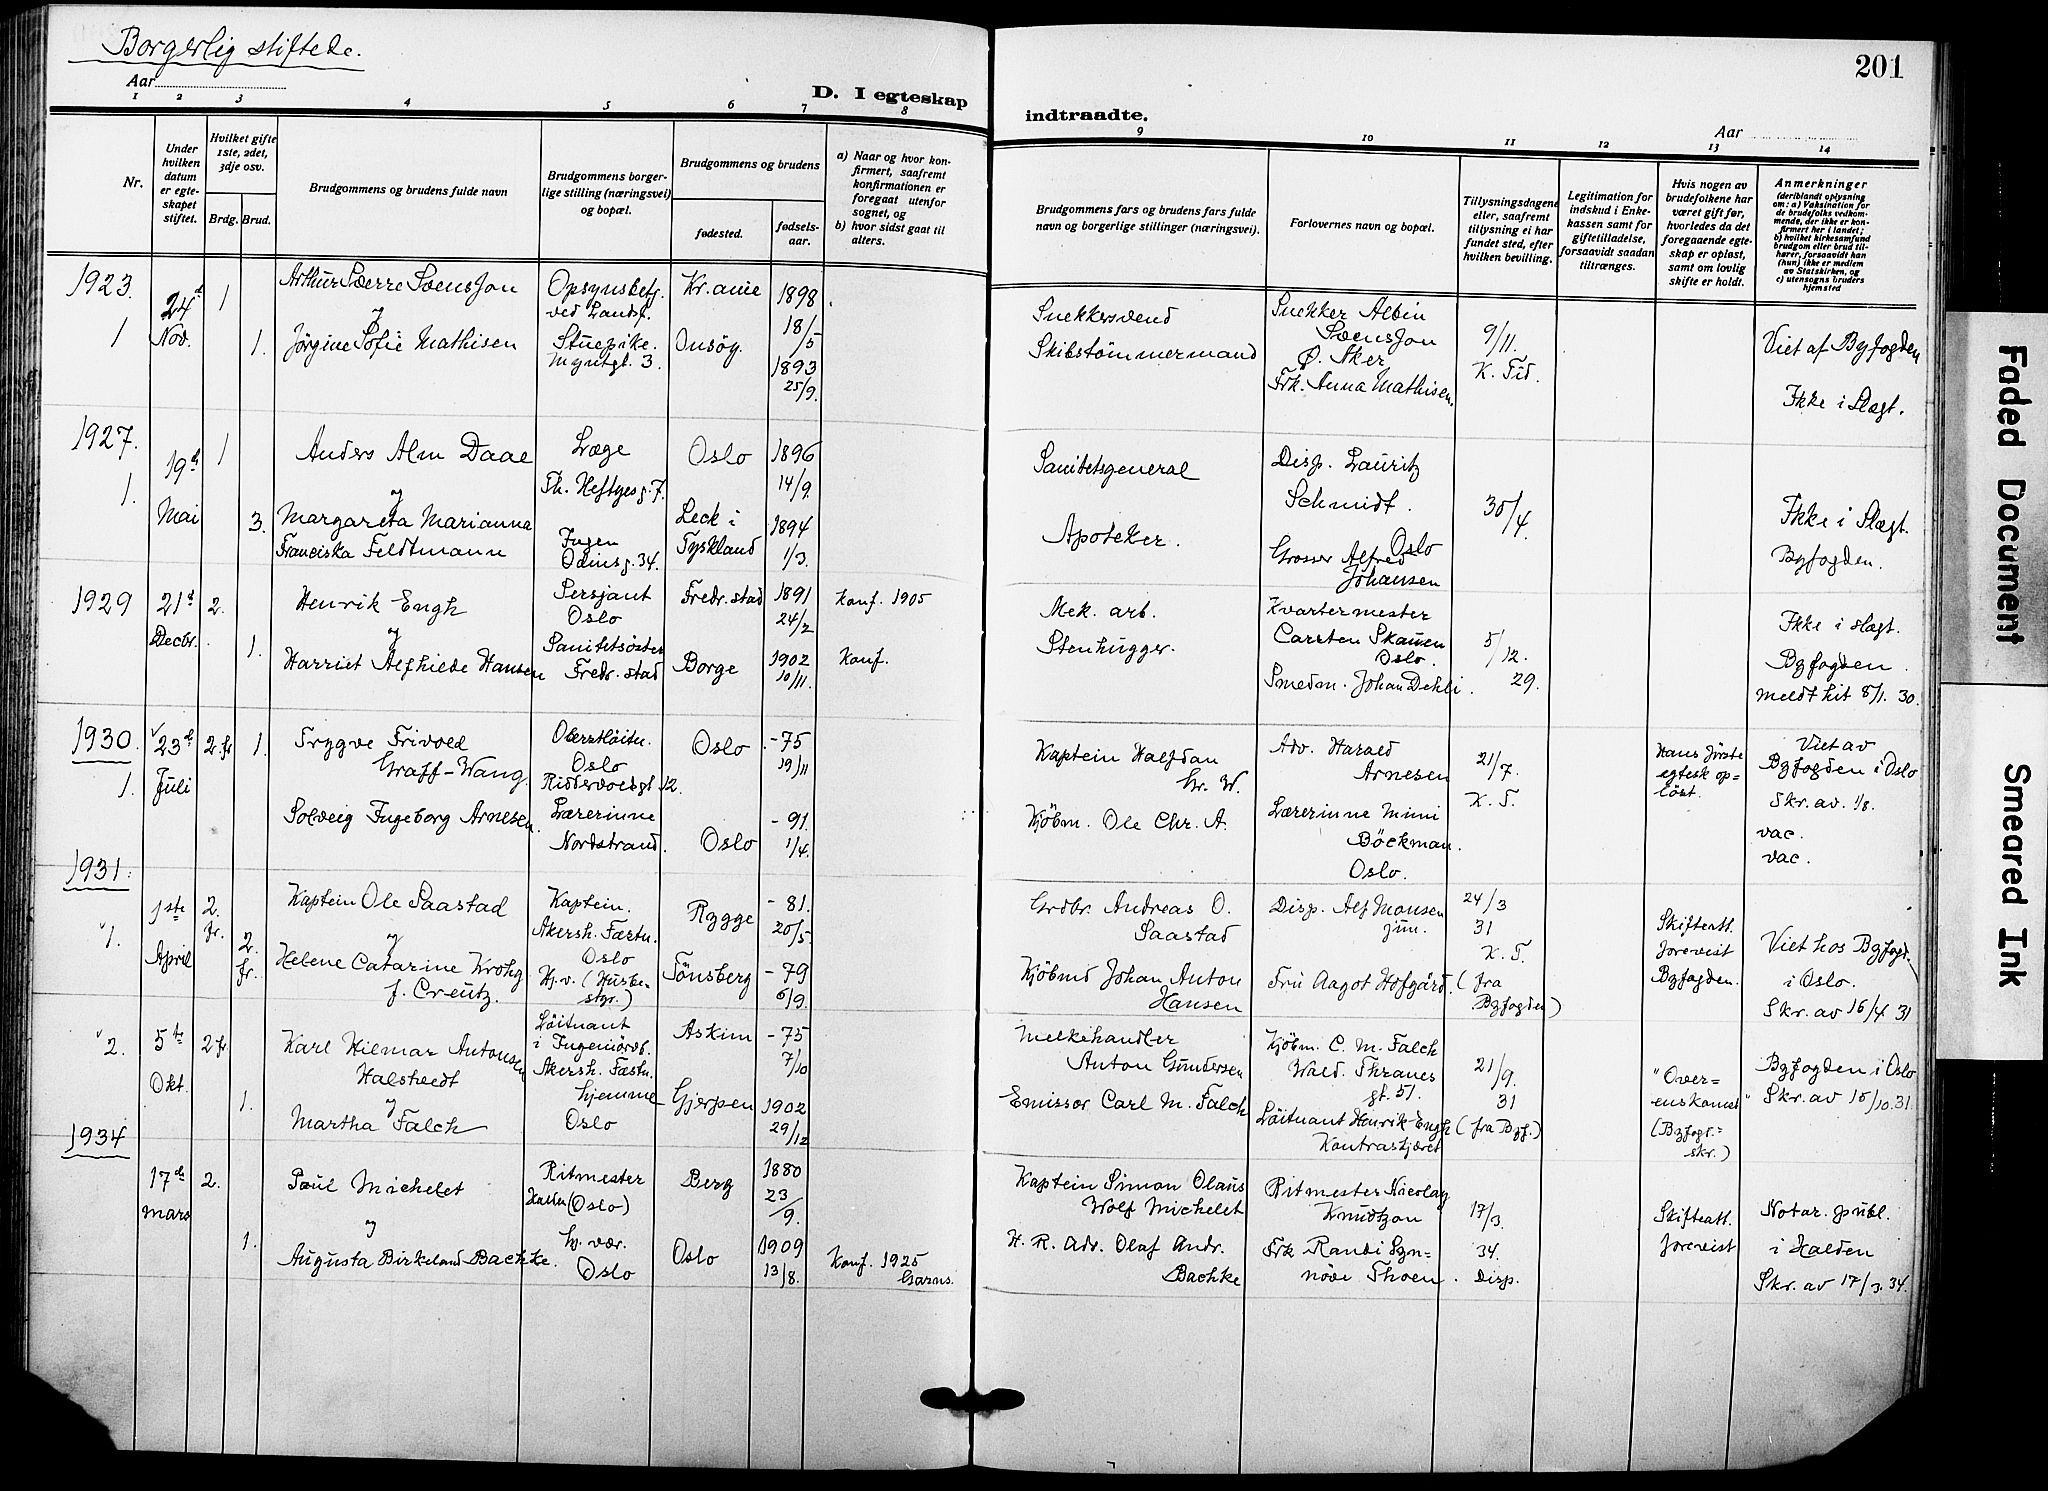 Borgerlig stiftede.
201
Aar
D. I egteskap
indtraadte.
Aar
1 2 3 4 5 6 7 8
9 10 11 12 13 14
Nr.
Under hvilken datum er egte-skapet stiftet.
Hvilket gifte 1ste, 2det, 3dje osv.
Brdg. Brud.
Brudgommens og brudens fulde navn
Brudgommens borger-lige stilling (næringsvei) og bopæl.
Brudgommens og brudens
fødested.
fødsels-aar.
a) Naar og hvor kon-firmert, saafremt konfirmationen er foregaat utenfor sognet, og
b) hvor sidst gaat til alters.
Brudgommens fars og brudens fars fulde navn og borgerlige stillinger (næringsvei).
Forlovernes navn og bopæl.
Tillysningsdagene eller, saafremt tillysning ei har fundet sted, efter hvilken bevilling.
Legitimation for indskud i Enke-kassen samt for giftetilladelse, forsaavidt saadan tiltrænges.
Hvis nogen av brudefolkene har været gift før, hvorledes da det foregaaende egte-skap er opløst, samt om lovlig skifte er holdt.
Anmerkninger
(deriblandt oplysning om: a) Vaksination for de brudefolks vedkom-mende, der ikke er kon-firmert her i landet; b) hvilket kirkesamfund brudgom eller brud til-hører, forsaavidt han (hun) ikke er medlem av Statskirken, og c) utensogns bruders hjemsted
1923.
1
24d
Nov.
1
1.
Arthur Sverre Svensson
og
Jørgine Sofie Mathisen
Opsynsbetj.
ved Landsf.
Stuepike.
Myntgt. 3.
Kr.ania
Onsøy.
1898
18/5
1893
25/9.
Snekkersvend
Skibstømmermand
Snekker Albin
Svensson
Ø. Aker
Frk. Anna Mathisen.
9/11.
K. Tid.
Viet af Byfogden
Ikke i Slægt.
1927.
1.
19d
Mai
1
3.
Anders Alm Daae
og
Margareta Marianna
Franciska Feldtmann
Læge
Th. Heftyesg. 7.
Ingen
Odinsg. 34.
Oslo
Leck i
Tyskland
1896
14/9.
1894
1/3.
Sanitetsgeneral
Apoteker.
Disp. Lauritz
Schmidt.
Oslo
Grosser Alfred
Johansen
30/4.
Ikke i Slægt.
Byfogden.
1929
21d
Decbr.
2.
1.
Henrik Engh
og
Harriet Alfhilde Hansen
Sersjant
Oslo
Fredr.stad
Fredr.stad
Borge
1891
24/2
1902
10/11.
Konf. 1905
Konf.
Mek. arb.
Stenhugger.
Kvartermester
Carsten Skauen
Oslo.
Smedm. Johan Dehli.
5/12.
29.
Ikke i slægt.
Byfogden.
meldt hit 8/1. 30.
1930.
1.
23d
Juli
2. fr
1.
Trygve Frivold
Graff-Wang.
Solveig Ingeborg Arnesen.
Oberstløitn.
Oslo
Riddervoldsgt 12.
Lærerinne
Nordstrand.
Oslo
Oslo
-75
19/11
-91.
1/4.
Kaptein Halfdan
Gr. W.
Kjöbm. Ole Chr. A.
Adv. Harald
Arnesen
Lærerinne Mimi
Böckman.
Oslo.
21/7.
K. T.
Hans første
egtesk op-
löst.
Viet av
Byfogden i Oslo
Skr. av. 1/8.
vac.
vac.
1931.
1.
1ste
April
2.
fr.
2.
fr.
Kaptein Ole Saastad
og
Helene Catarine Krohg
f. Creutz.
Kaptein.
Akersh. Fæstn.
Oslo
Hj.v. (Husbe-
styr.)
Rygge
Tönsberg
-81.
20/5.
-79
6/9.
Grdbr. Andreas O.
Saastad
Kjöbmd Johan Anton
Hansen
Disp. Alf Monsen
jun.
Fru Aagot Hofgård.
24/3
31
K. T.
(fra
Byfogden)
Skifteatt.
forevist
Byfogden.
Viet hos Byfogd.
i Oslo.
Skr. av 16/4 31
2.
5te
Okt.
2 fr.
1.
Karl Hilmar Antonsen
Halstvedt
og
Martha Falch
Löitnant
i Ingeniörvb.
Akersh. Fæstn.
hjemme
Oslo
Askim
Gjerpen
-75
7/10
1902
29/12
Melkehandler
Anton Gundersen
Emissær Carl M. Falch
Kjöbm. C. M. Falch
Wald. Thranes
gt. 51.
Löitnant Henrik Engh
Kontraskjæret
21/9.
31
(fra Byf.)
"Over-
enskomst"
(Byfogd.-
skr.)
Byfogden i Oslo
Skr. av 15/10.31.
1934
17de
mars
2.
1.
Paul Michelet
og
Augusta Birkeland Bachke.
Ritmester
Halden (Oslo)
hj. vær.
Oslo
Berg
Oslo
1880
23/9.
1909
13/8.
Konf. 1925
Garns.
Kaptein Simon Olaus
Wolf Michelet
H. R. Adv. Olaf Andr.
Bachke
Ritmester Nicolay
Knudtzon
Frk Randi Syn-
növe Thoen.
17/3.
34.
Disp.
Skifteatt.
forevist
Notar. publ.
i Halden
Skr. av 17/3. 34.
Faded Document
Smeared Ink